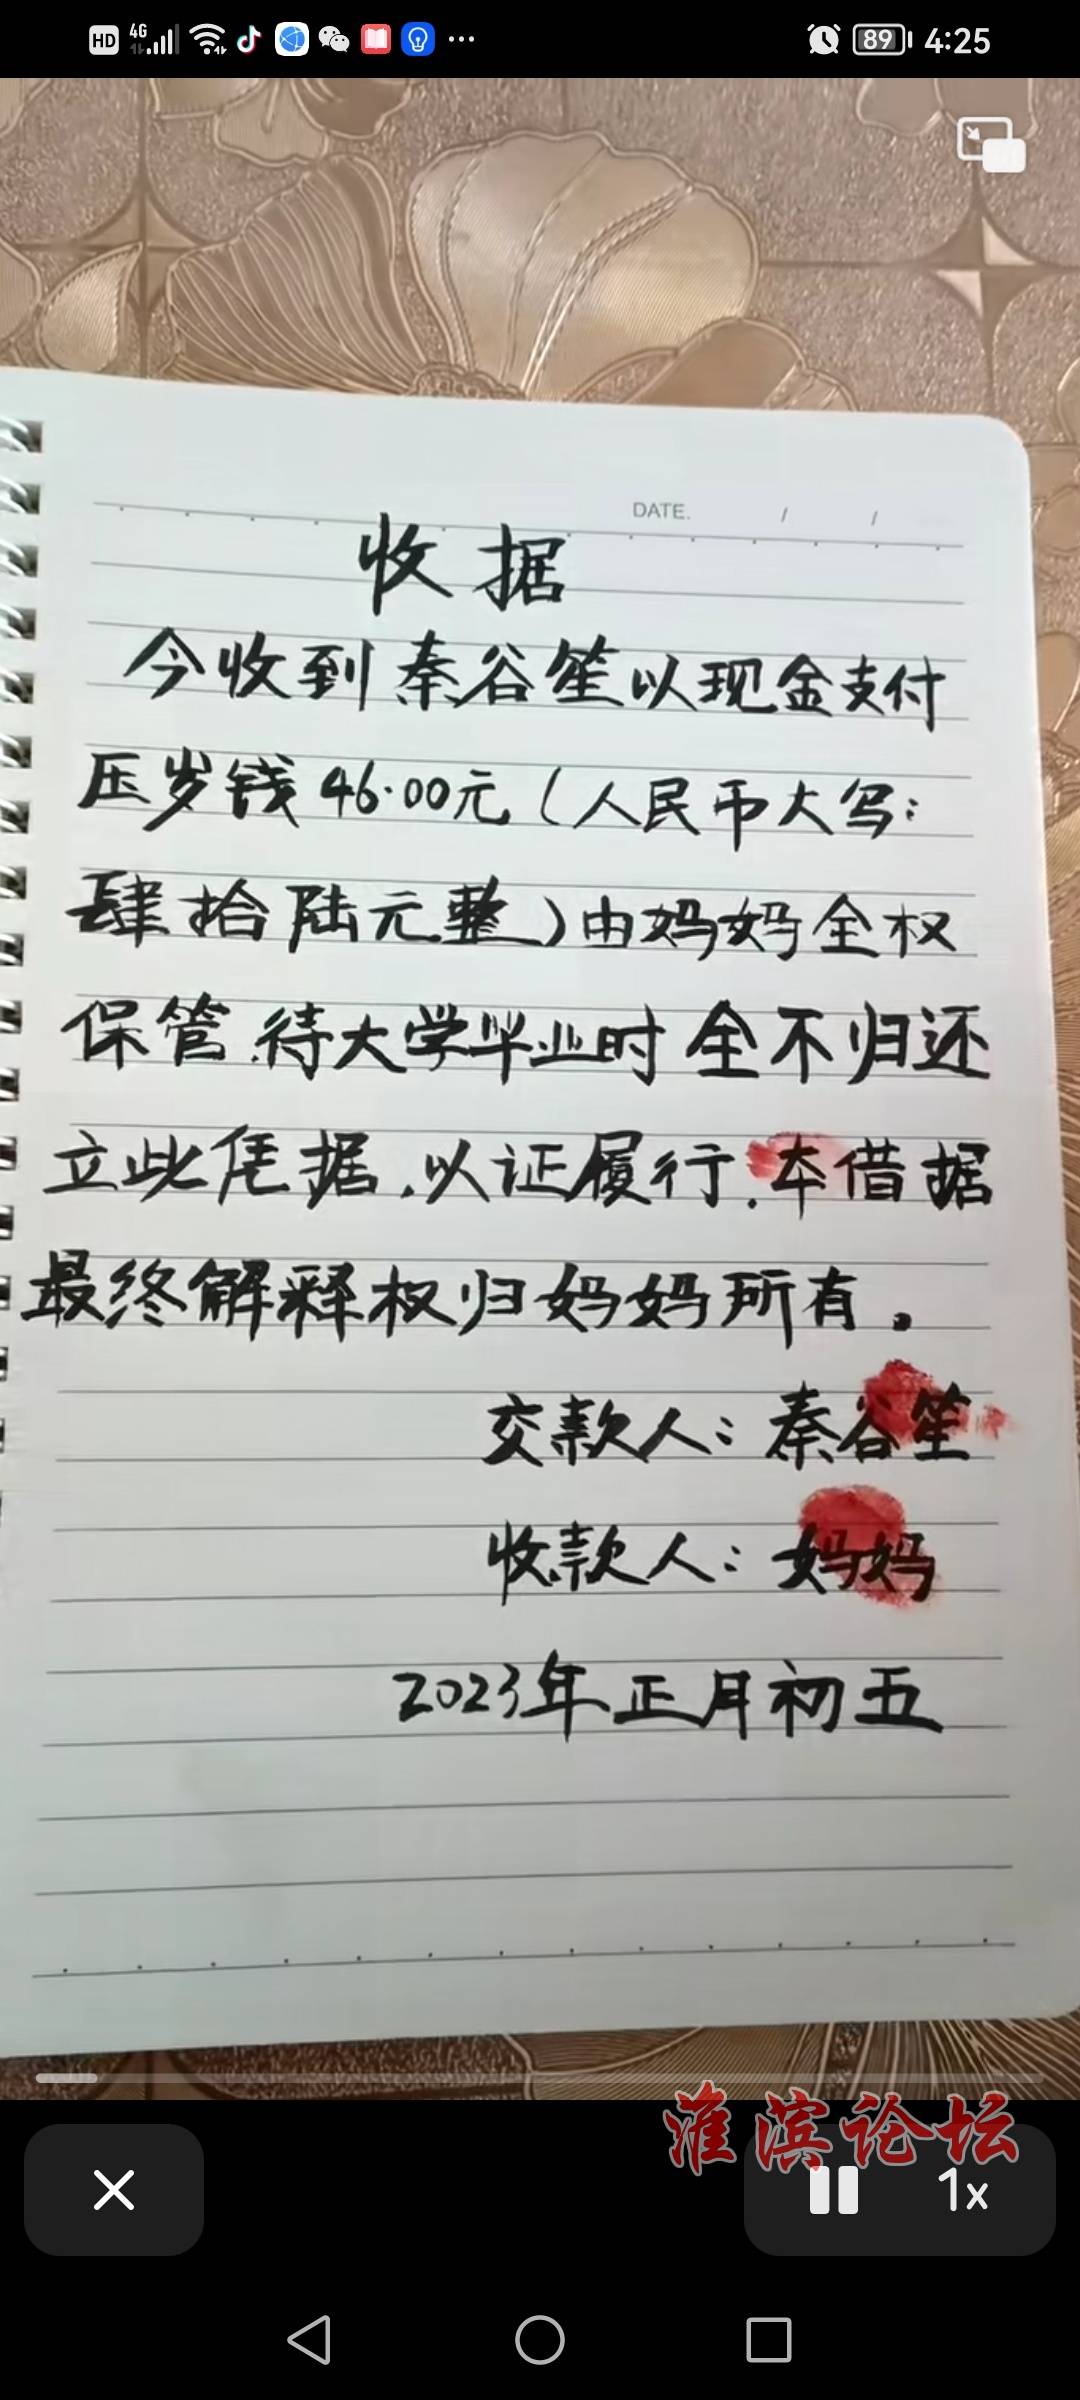 HD 4G 89 4:25
DATE. / /
收据
今收到秦谷笙以现金支付
压岁钱46.00元(人民币大写:
肆拾陆元整)由妈妈全权
保管.待大学毕业时全不归还
立此凭据.以证履行.本借据
最终解释权归妈妈所有.
交款人:秦谷笙
收款人:妈妈
2023年正月初五
淮滨论坛
1x